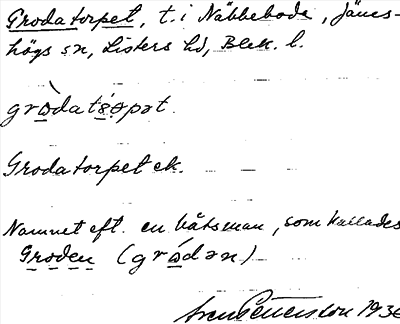 Grodatorpet, t. i Näbbeboda, Jämes-
högs sn, Listers hd, Blek. l.
gròdatå̀rpət.
Grodatorpet ek.
Namnet eft. en båtsman, som kallades
Groden (gródən)
Sven Petersson 1936